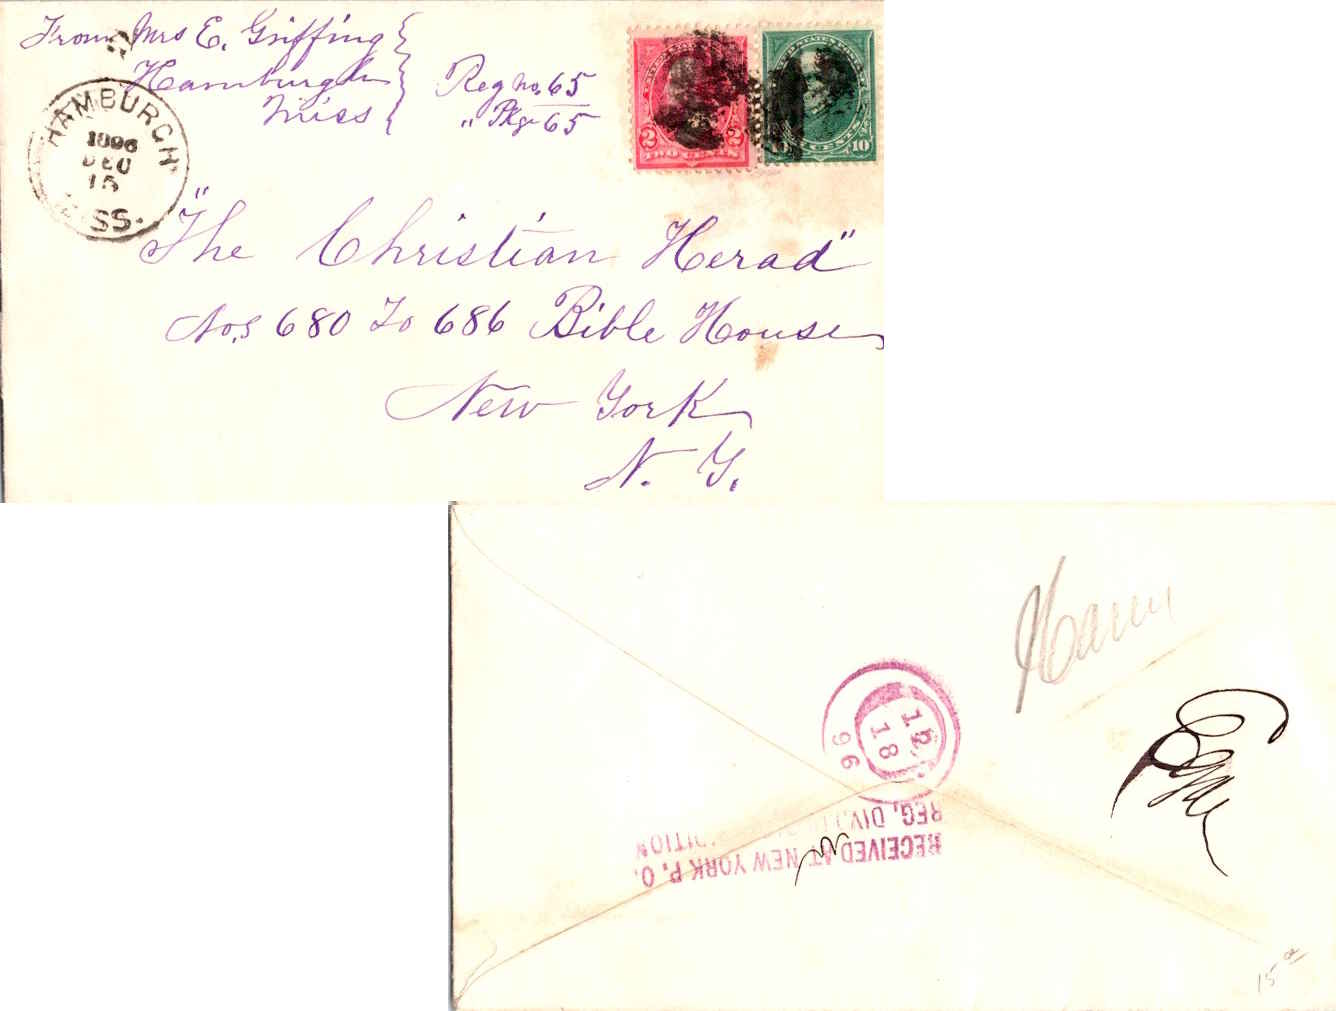 From Mrs E. Griffing
Hamburgh
Miss
Reg no. 65
" Pkg 65
HAMBURGH
1896
DEC
15
MISS.
2 2
TWO CENTS
CENTS 10
"The Christian Herad"
Nos 680 To 686 Bible House
New York
N. Y.
12
18
96
RECEIVED AT NEW YORK P. O.
REG. DIV.
15